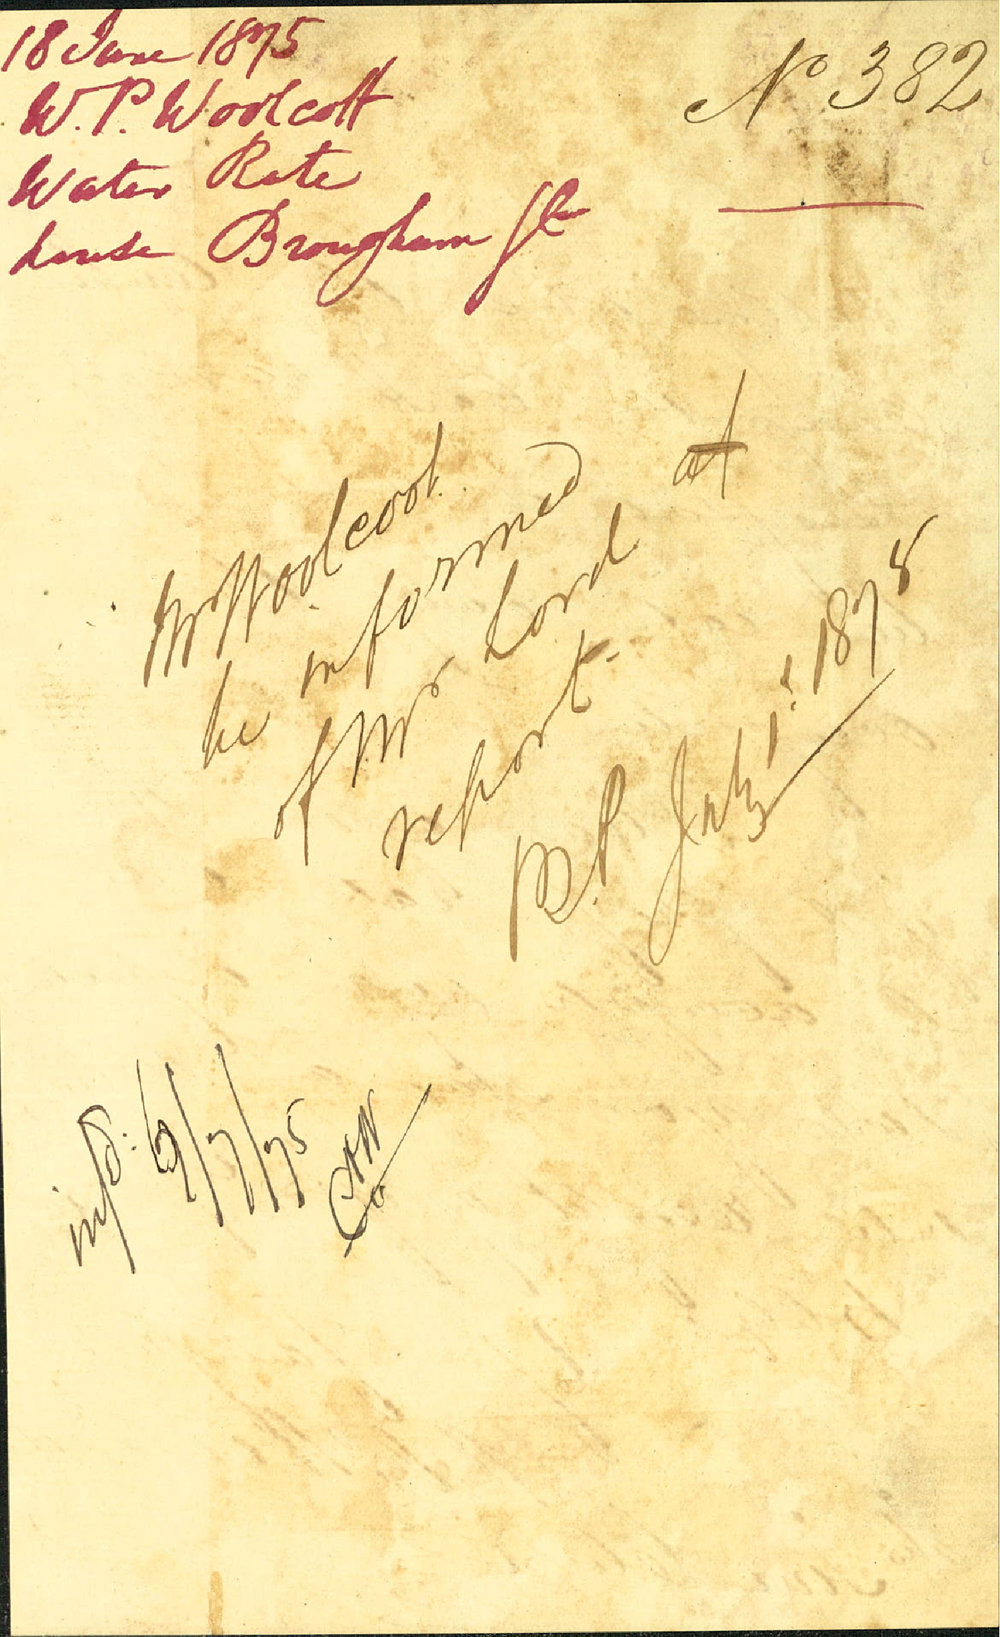 18 June 1875
W. P. Woolcott
Water Rate
house Brougham St
No 382
Mr Woolcoot
be informed at
of Mr Lord
report.
M.P. July 1st 1875
infd: 6/7/75